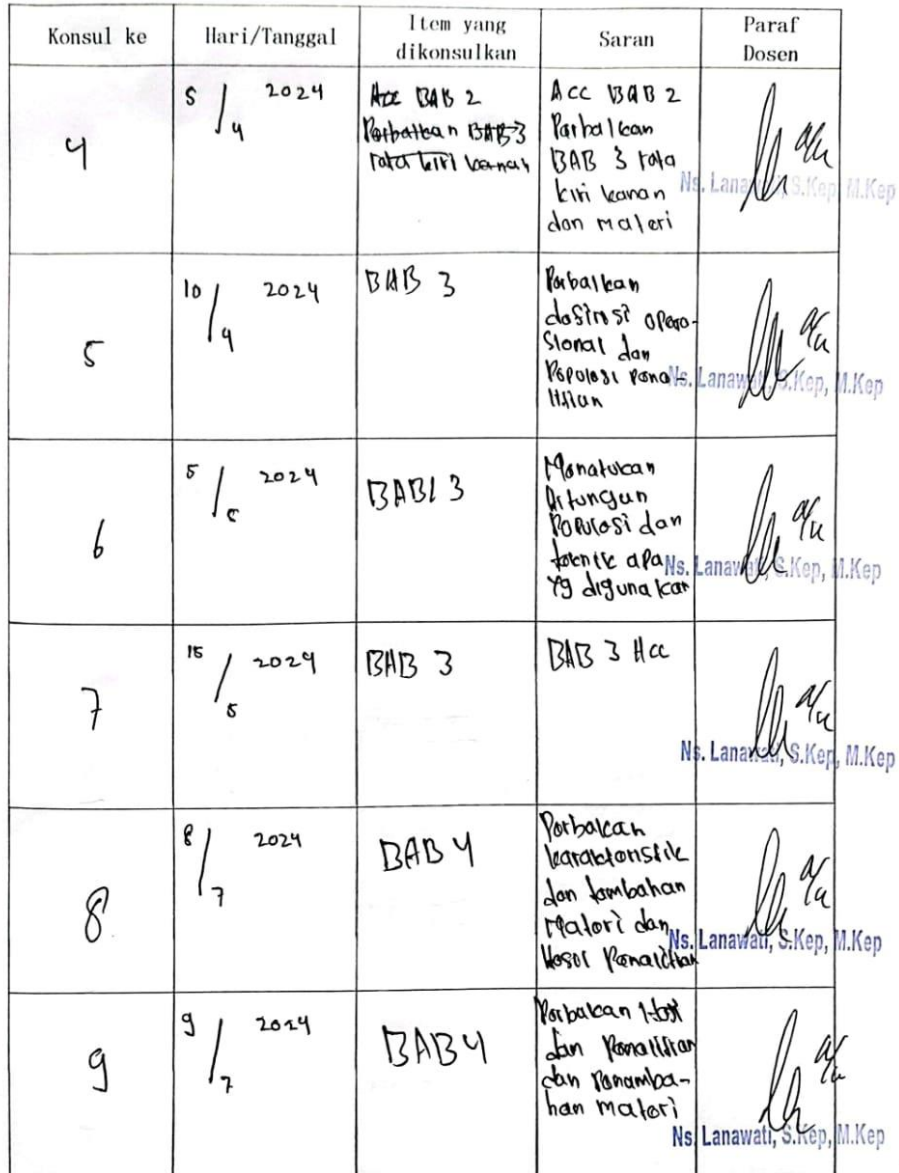 Konsul ke Hari/Tanggal Item yang dikonsulkan Saran Paraf Dosen
4
5/4 2024
Acc BAB 2
Perbaikan BAB 3
rata kiri kanan
Acc BAB 2
Perbaikan
BAB 3 rata
kiri kanan
dan materi
Ns. Lanawati, S.Kep, M.Kep
5
10/4 2024
BAB 3
Perbaikan
definisi opera-
sional dan
Populasi pene-
litian
Ns. Lanawati, S.Kep, M.Kep
6
5/5 2024
BAB 3
Menatukan
hitungan
Populasi dan
teknik apa
yg digunakan
Ns. Lanawati, S.Kep, M.Kep
7
15/5 2024
BAB 3
BAB 3 Acc
Ns. Lanawati, S.Kep, M.Kep
8
8/7 2024
BAB 4
Perbaikan
karakteristik
dan tambahan
Materi dan
Hasil Penelitian
Ns. Lanawati, S.Kep, M.Kep
9
9/7 2024
BAB 4
Perbaikan
dan Penelitian
dan Penamba-
han materi
Ns. Lanawati, S.Kep, M.Kep